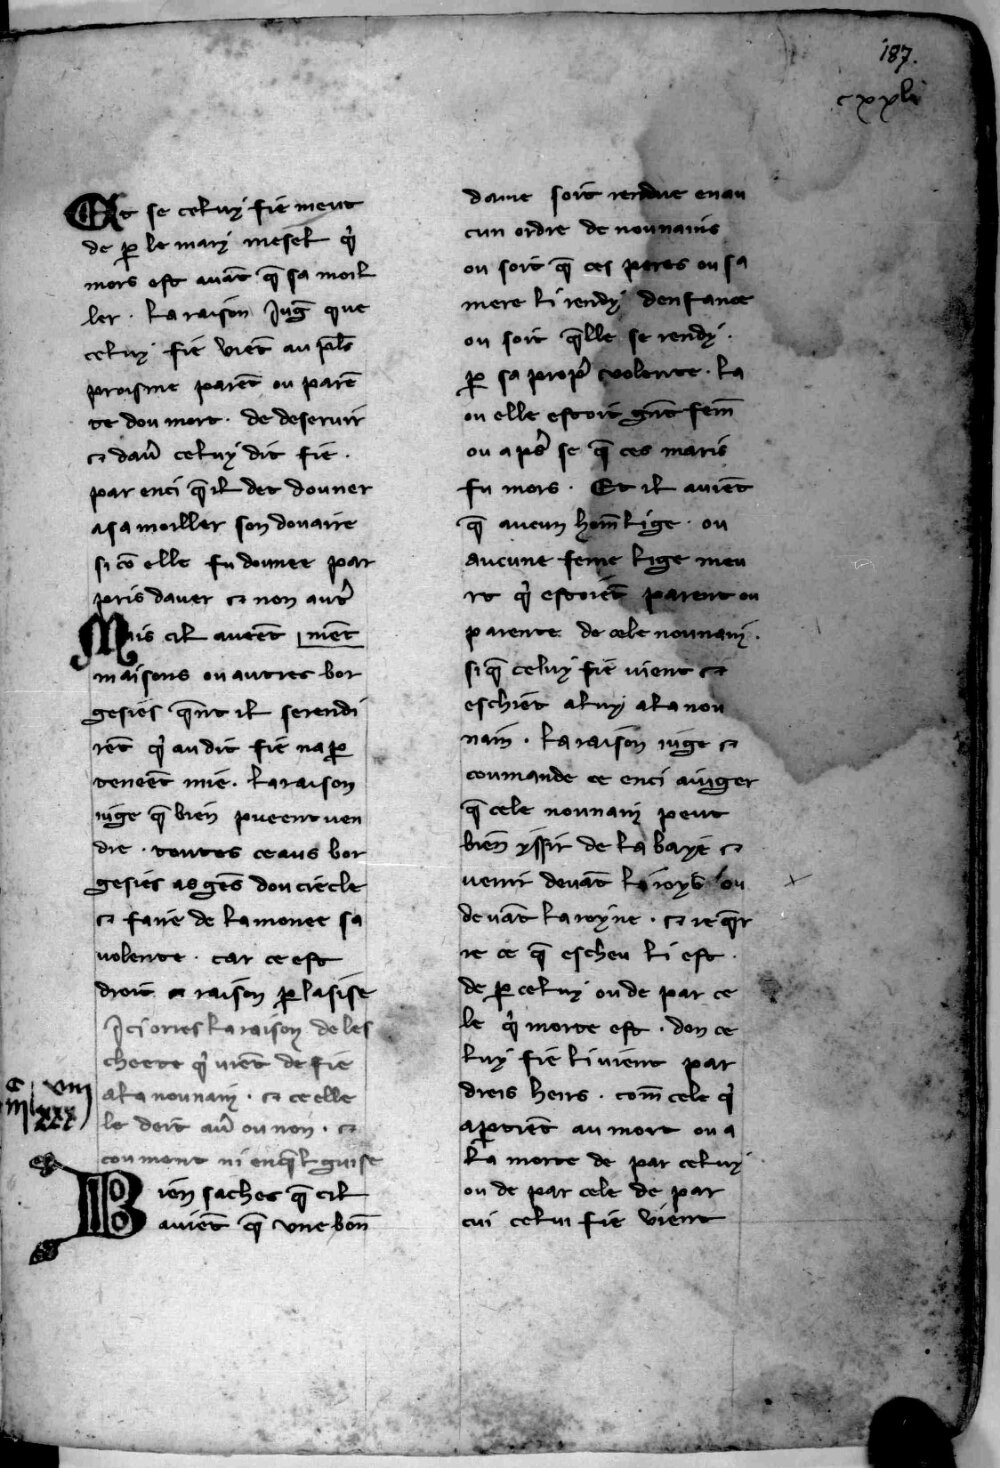 187.
cxxli
Et se celuy fie meut
de p̲ le mary mesel qͥ
mors est auāt q̄ sa moil
ler . la raison Juḡ que
celuy fie viēt au pl̄s
proisme parēt ou parē
te dou mort . de deseruir
⁊ dau̾ celuy dit fie .
par enci q̄ il det douner
a sa moiller son douaire
si cō elle fu dounee par
pris dauer ⁊ non aut̾
Mais cil auēēt niēt
maisons ou autres bor
gesies q̄nt il serendi
rēt qͥ au dit fie na p̲
teneēt mie . la raison
iuge q̄ bien pueent uen
dre . toutes ceaus bor
gesies as gēs dou ciecle
⁊ faire de la monee sa
volente . car ce est
droit ⁊ raison p̲ lasise
Ici ories la raison de les
cheete qͥ viēt de fie
a la nounain . ⁊ ce elle
le deit au̾ ou non . ⁊
coument ni en q̄l guise
Bien saches q̄ cil
auiēt q̄ une bon̄
dame soit rendue en au
cun ordre de nounains
ou soit q̄ ces peres ou sa
mere li rendy denfance
ou soit q̄lle se rendy .
p̲ sa prop̾ volente . la
ou elle estoit gn̄t fem̄
ou ap̾s se q̄ ces maris
fu mors . Et il auiēt
q̄ aucun hom̄ lige . ou
aucune feme lige meu
rt qͥ estoiēt parent ou
parente de cele nounain .
si q̄ celuy fie vient ⁊
eschiet a luy a la nou
nain . la raison iuge ⁊
coumande ce enci a iuger
q̄ cele nounain peut
biēn yssir de labaye ⁊
venir deuāt le roy ou
deuāt la royne . ⁊ req̄r
re ce q̄ escheu li est .
de p̲ celuy ou de par ce
le qͥ morte est . don ce
luy fie li vient par
dreis heirs . com̄ cele qͥ
ap̲tiēt au mort ou a
la morte de par celuy
ou de par cele de par
cui celui fie vient